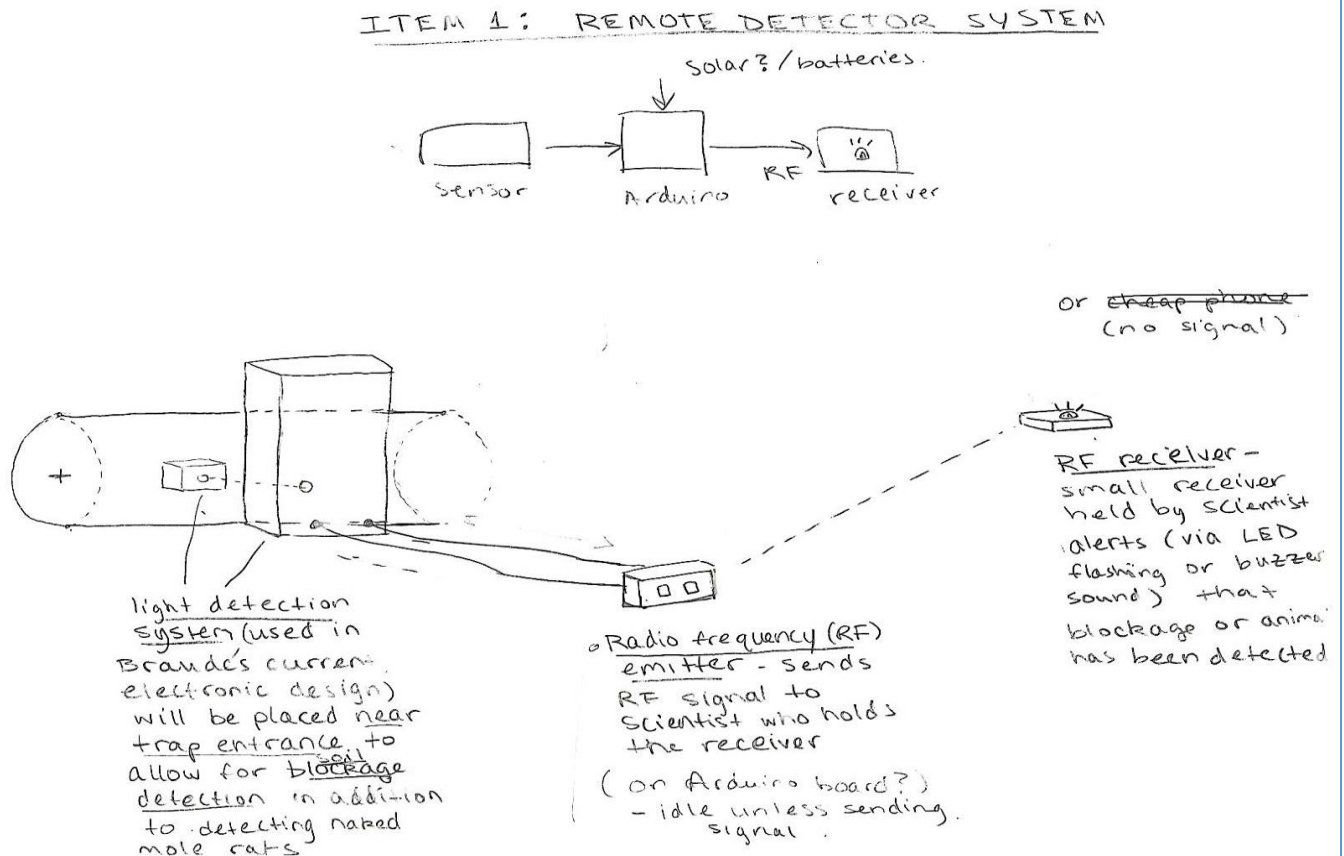 ITEM 1: REMOTE DETECTOR SYSTEM
solar?/batteries.
sensor
Arduino
RF
receiver
or cheap phone
(no signal)
light detection
system (used in
Braude's curren
electronic design)
will be placed near
trap entrance to
allow for soil blockage
detection in addition
to detecting naked
mole rats
Radio frequency (RF)
emitter - sends
RF signal to
scientist who holds
the receiver
(on Arduino board?)
- idle unless sending
signal.
RF receiver -
small receiver
held by scientist
alerts (via LED
flashing or buzzer
sound) that
blockage or anima
has been detected